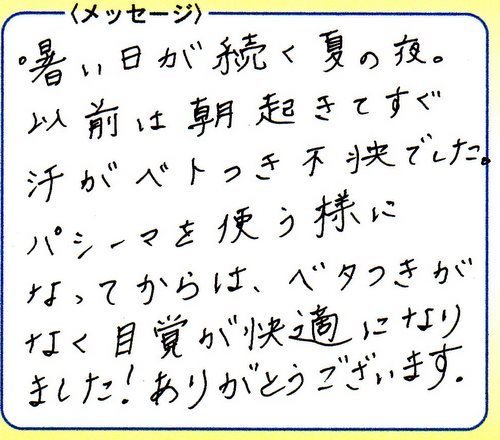 〈メッセージ〉
。暑い日が続く夏の夜。
以前は朝起きてすぐ
汗がベトつき不快でした。
パシーマを使う様に
なってからは、ベタつきが
なく目覚が快適になり
ました!ありがとうございます。